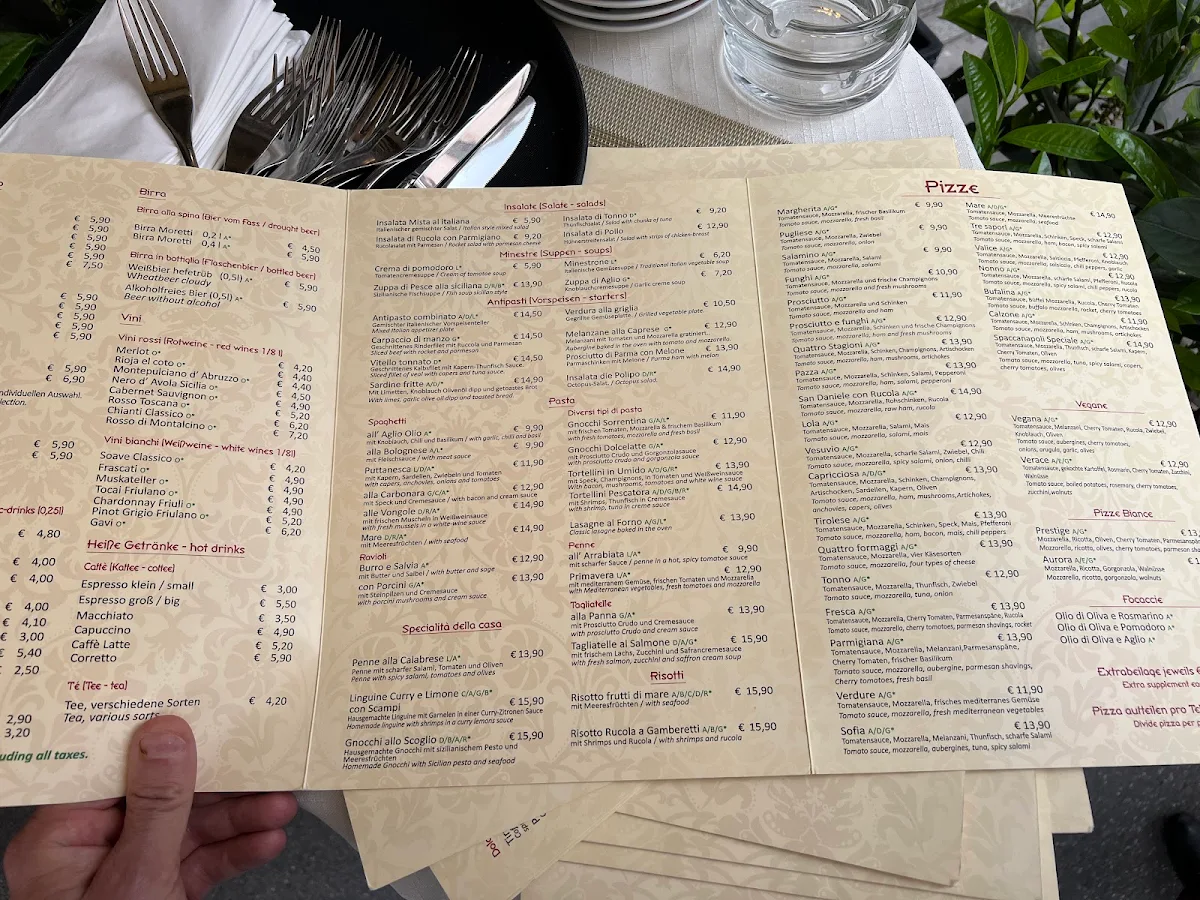 € 5,90
€ 5,90
€ 5,90
€ 5,90
€ 5,90
€ 7,50
€ 5,90
€ 5,90
€ 5,90
€ 5,90
€ 5,90
€ 6,90
individuellen Auswahl.
€ 5,90
€ 5,90
c-drinks (0,25l)
€ 4,80
€ 4,00
€ 4,00
€ 4,00
€ 4,10
€ 3,00
€ 5,40
€ 2,50
2,90
3,20
uding all taxes.
Birra
Birra alla spina (Bier vom Fass / drought beer)
Birra Moretti 0,2 l A* € 4,50
Birra Moretti 0,4 l A* € 5,90
Birra in bottiglia (Flaschenbier / bottled beer)
Weißbier hefetrüb (0,5l) A* € 5,90
Wheatbeer cloudy
Alkoholfreies Bier (0,5l) A* € 5,90
Beer without alcohol
Vini
Vini rossi (Rotweine - red wines 1/8 l)
Merlot O* € 4,20
Rioja el coto O* € 4,40
Montepulciano d' Abruzzo O* € 4,40
Nero d' Avola Sicilia O* € 4,50
Cabernet Sauvignon O* € 4,90
Rosso Toscana O* € 5,20
Chianti Classico O* € 6,20
Rosso di Montalcino O* € 7,20
Vini bianchi (Weißweine - white wines 1/8l)
Soave Classico O* € 4,20
Frascati O* € 4,90
Muskateller O* € 4,90
Tocai Friulano O* € 4,90
Chardonnay Friuli O* € 4,90
Pinot Grigio Friulano O* € 5,20
Gavi O* € 6,20
Heiße Getränke - hot drinks
Caffè (Kaffee - coffee)
Espresso klein / small € 3,00
Espresso groß / big € 5,50
Macchiato € 3,50
Capuccino € 4,90
Caffè Latte € 5,20
Corretto € 5,90
Té (Tee - tea)
Tee, verschiedene Sorten € 4,20
Tea, various sorts
Insalate (Salate - salads)
Insalata Mista al Italiana € 5,90
Italienischer gemischter Salat / Italian style mixed salad
Insalata di Rucola con Parmigiano € 9,20
Rucolasalat mit Parmesan / Rocket salad with parmesan cheese
Insalata di Tonno D* € 9,20
Salad with chunks of tuna
Insalata di Pollo € 12,90
Hühnerstreifensalat / Salad with strips of chicken-breast
Minestre (Suppen - soups)
Crema di pomodoro L* € 5,90
Tomatencremesuppe / Cream of tomatoe soup
Zuppa di Pesce alla siciliana D/B/R* € 13,90
Sizilianische Fischsuppe / Fish soup sicilian style
Minestrone L* € 6,20
Italienische Gemüsesuppe / Traditional Italian vegetable soup
Zuppa di Aglio G* € 7,20
Knoblauchcremesuppe / Garlic creme soup
Antipasti (Vorspeisen - starters)
Antipasto combinato A/D/L* € 14,50
Gemischter Italienischer Vorspeisenteller
Mixed Italian appetizer plate
Carpaccio di manzo G* € 14,50
Geschnittenes Rinderfilet mit Ruccola und Parmesan
Sliced beef with rocket and parmesan
Vitello tonnato D* € 14,50
Geschnittenes Kalbsfilet mit Kapern-Thunfisch Sauce.
Sliced fillet of veal with capers and tuna sauce.
Sardine fritte A/D/* € 14,90
Mit Limetten, Knoblauch Olivenöl dipp und getoastes Brot
With limes, garlic olive oil dip and toasted bread.
Verdura alla griglia € 10,50
Gegrillte Gemüseplatte / Grilled vegetable plate
Melanzane alla Caprese G* € 12,90
Melanzane mit Tomaten und Mozzarella gratiniert..
Aubergine baked in the oven with tomato and mozzarella.
Prosciutto di Parma con Melone € 13,90
Parmaschinken mit Melone / Parma ham with melon
Insalata die Polipo D/R* € 14,90
Octopus-Salat. / Octopus salad.
Pasta
Spaghetti
all' Aglio Olio A* € 9,90
mit Knoblauch, Chili und Basilikum / with garlic, chili and basil
alla Bolognese A/L* € 9,90
mit Fleischsauce / with meat sauce
Puttanesca L/D/A* € 11,90
mit Kapern, Sardellen, Zwiebeln und Tomaten
with capers, anchovies, onions and tomatoes
alla Carbonara G/C/A* € 12,90
mit Speck und Cremesauce / with bacon and cream sauce
alle Vongole D/R/A* € 14,90
mit frischen Muscheln in Weißweinsauce
with fresh mussels in a white-wine sauce
Mare D/R/A* € 14,90
mit Meeresfrüchten / with seafood
Ravioli
Burro e Salvia A* € 12,90
mit Butter und Salbei / with butter and sage
con Porcini G/A* € 13,90
mit Steinpilzen und Cremesauce
with porcini mushrooms and cream sauce
Specialità della casa
Penne alla Calabrese L/A* € 13,90
Penne mit scharfer Salami, Tomaten und Oliven
Penne with spicy salami, tomatoes and olives
Linguine Curry e Limone C/A/G/B* € 15,90
con Scampi
Hausgemachte Linguine mit Garnelen in einer Curry-Zitronen Sauce
Homemade linguine with shrimps in a curry lemons sauce
Gnocchi allo Scoglio D/B/A/R* € 15,90
Hausgemachte Gnocchi mit sizilianischem Pesto und
Meeresfrüchten
Homemade Gnocchi with Sicilian pesto and seafood
Diversi tipi di pasta
Gnocchi Sorrentina G/A/L* € 11,90
mit frischen Tomaten, Mozzarella & frischem Basilikum
with fresh tomatoes, mozzarella and fresh basil
Gnocchi Dolcelatte G/A* € 12,90
mit Prosciutto Crudo und Gorgonzolasauce
with prosciutto crudo and gorgonzola sauce
Tortellini in Umido A/D/G/R* € 13,90
mit Speck, Champignons, in Tomaten und Weißweinsauce
with bacon, mushrooms, tomatoes and white wine sauce
Tortellini Pescatora A/D/G/B/R* € 14,90
mit Shrimps, Thunfisch in Cremesauce
with shrimp, tuna in creme sauce
Lasagne al Forno A/G/L* € 13,90
Classic lasagne baked in the oven
Penne
all' Arrabiata L/A* € 9,90
mit scharfer Sauce / penne in a hot, spicy tomatoe sauce
Primavera L/A* € 12,90
mit mediterranem Gemüse, frischen Tomaten und Mozzarella
with Mediterranean vegetables, fresh tomatoes and mozzarella
Tagliatelle
alla Panna G/A* € 13,90
mit Prosciutto Crudo und Cremesauce
with prosciutto Crudo and cream sauce
Tagliatelle al Salmone D/G/A* € 15,90
mit frischem Lachs, Zucchini und Safrancremesauce
with fresh salmon, zucchini and saffron cream soup
Risotti
Risotto frutti di mare A/B/C/D/R* € 15,90
mit Meeresfrüchten / with seafood
Risotto Rucola a Gamberetti A/B/G* € 15,90
mit Shrimps und Rucola / with shrimps and rucola
Pizze
Margherita A/G* € 9,90
Tomatensauce, Mozzarella, frischer Basilikum
Tomato sauce, mozzarella, fresh basil
Pugliese A/G* € 9,90
Tomatensauce, Mozzarella, Zwiebel
Tomato sauce, mozzarella, onion
Salamino A/G* € 9,90
Tomatensauce, Mozzarella, Salami
Tomato sauce, mozzarella, salami
Funghi A/G* € 10,90
Tomatensauce, Mozzarella und frische Champignons
Tomato sauce, mozzarella and fresh mushrooms
Prosciutto A/G* € 11,90
Tomatensauce, Mozzarella und Schinken
Tomato sauce, mozzarella and ham
Prosciutto e funghi A/G* € 12,90
Tomatensauce, Mozzarella, Schinken und frische Champignons
Tomato sauce, mozzarella, ham and fresh mushrooms
Quattro Stagioni A/G* € 13,90
Tomatensauce, Mozzarella, Schinken, Champignons, Artischocken
Tomato sauce, mozzarella, ham, mushrooms, artichokes
Pazza A/G* € 14,90
Tomatensauce, Mozzarella, Schinken, Salami, Pepperoni
Tomato sauce, mozzarella, ham, salami, pepperoni
San Daniele con Rucola A/G* € 14,90
Tomatensauce, Mozzarella, Rohschinken, Rucola
Tomato sauce, mozzarella, raw ham, rucola
Lola A/G* € 12,90
Tomatensauce, Mozzarella, Salami, Mais
Tomato sauce, mozzarella, salami, mais
Vesuvio A/G* € 12,90
Tomatensauce, Mozzarella, scharfe Salami, Zwiebel, Chili
Tomato sauce, mozzarella, spicy salami, onion, chili
Capricciosa A/D/G* € 13,90
Tomatensauce, Mozzarella, Schinken, Champignons,
Artischocken, Sardellen, Kapern, Oliven
Tomato sauce, mozzarella, ham, mushrooms,Artichokes,
anchovies, capers, olives
Tirolese A/G* € 13,90
Tomatensauce, Mozzarella, Schinken, Speck, Mais, Pfefferoni
Tomato sauce, mozzarella, ham, bacon, mais, chili peppers
Quattro formaggi A/G* € 13,90
Tomatensauce, Mozzarella, vier Käsesorten
Tomato sauce, mozzarella, four types of cheese
Tonno A/G* € 12,90
Tomatensauce, Mozzarella, Thunfisch, Zwiebel
Tomato sauce, mozzarella, tuna, onion
Fresca A/G* € 13,90
Tomatensauce, Mozzarella, Cherry Tomaten, Parmesanspäne, Rucola
Tomato sauce, mozzarella, cherry tomatoes, parmesan shavings, rocket
Parmigiana A/G* € 13,90
Tomatensauce, Mozzarella, Melanzani,Parmesanspäne,
Cherry Tomaten, frischer Basilikum
Tomato sauce, mozzarella, aubergine, permesan shavings,
Cherry tomatoes, fresh basil
Verdure A/G* € 11,90
Tomatensauce, Mozzarella, frisches mediterranes Gemüse
Tomato sauce, mozzarella, fresh mediterranean vegetables
Sofia A/D/G* € 13,90
Tomatensauce, Mozzarella, Melanzani, Thunfisch, scharfe Salami
Tomato sauce, mozzarella, aubergines, tuna, spicy salami
Mare A/D/G* € 14,90
Tomatensauce, Mozzarella, Meeresfrüchte
Tomato sauce, mozzarella, seafood
Tre sapori A/G* € 12,90
Tomatensauce, Mozzarella, Schinken, Speck, scharfe Salami
Tomato sauce, mozzarella, ham, bacon, spicy salami
Valice A/G* € 12,90
Nonno A/G* € 12,90
Bufalina A/G* € 13,90
Tomatensauce, Büffel Mozzarella, Rucola, Cherry Tomaten
Tomato sauce, buffalo mozzarella, rocket, cherry tomatoes
Calzone A/G* € 11,90
Tomatensauce, Mozzarella, Schinken, Champignons, Artischoken
Tomato sauce, mozzarella, ham, mushrooms, artichokes
Spaccanapoli Speciale A/G* € 14,90
Tomatensauce, Mozzarella, Thunfisch, scharfe Salami, Kapern,
Cherry Tomaten, Oliven
Tomato sauce, mozzarella, tuna, spicy salami, capers,
cherry tomatoes, olives
Vegane
Vegana A/G* € 12,90
Knoblauch, Oliven
Tomato sauce, aubergines, cherry tomatoes,
onions, arugula, garlic, olives
Verace A/E/G* € 12,90
Tomatensauce, gekochte Kartoffel, Rosmarin, Cherry Tomaten, Zucchini,
Walnüsse
Tomato sauce, boiled potatoes, rosemary, cherry tomatoes,
zucchini,walnuts
Pizze Biance
Prestige A/G*
Mozzarella, Ricotta, Oliven, Cherry Tomaten,
Mozzarella, ricotta, olives, cherry tomatoes, parmesan
Aurora A/E/G*
Mozzarella, Ricotta, Gorgonzola, Walnüsse
Mozzarella, ricotta, gorgonzola, walnuts
Focaccie
Olio di Oliva e Rosmarino A*
Olio di Oliva e Pomodoro A*
Olio di Oliva e Aglio A*
Extrabeilage jeweils €
Extra supplement
Pizza aufteilen pro
Divide pizza per